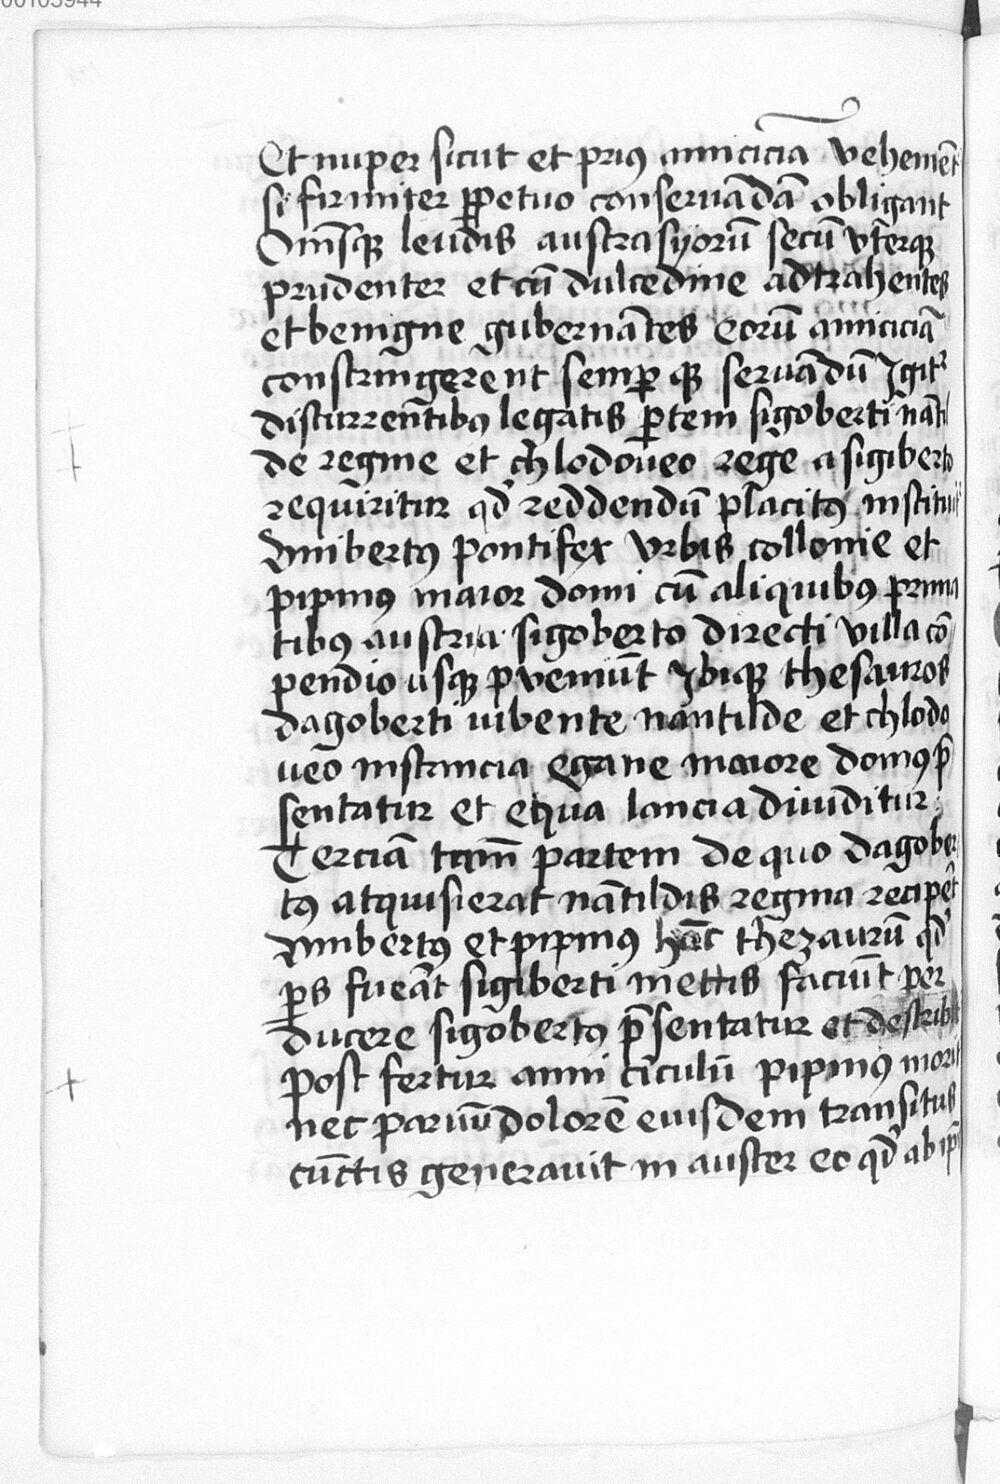 00103944
Et nuper sicut et prius amiciciā vehemēt
si firmiter ꝑpetuo conseruādā obligant
Om̄sqꝫ leudis austrasyorū secū vt̄erqꝫ
prudenter et cū dulcedine adtrahentes
et benigne gubernātes eorū amiciciā
constringerēnt semꝑ qꝫ seruādū Igit᷑
discurrentibꝰ legatis ꝑtem sigoberti nātil
de regine et chlodoueo rege a sigiberto
requiritur qd̕ reddendū placitꝰ instituit
Vnibertꝰ pontifex vrbis collonie et
pipinꝰ maior domi cū aliquibꝰ prima
tibꝰ austria sigoberto directi villa cō
pendio usqꝫ ꝑveniūt Ibiqꝫ thesauros
dagoberti iubente nantilde et chlodo
ueo instancia egane maiore domꝰ p̄
sentatur et equa lancia diuiditur
Terciā tam̄ partem de quo dagober
tꝰ atquisierat nātildis regina recipet̄
Vnibertꝰ et pipinꝰ hāc thezaurū qd̕
ꝑs fueāt sigiberti mettis faciūt per
ducere sigobertꝰ p̄sentatur et describit
Post fertur anni circulū pipinꝰ morit
nec paruū dolorē eiusdem transitus
cūctis generauit in auster eo qd̕ ab ip̄